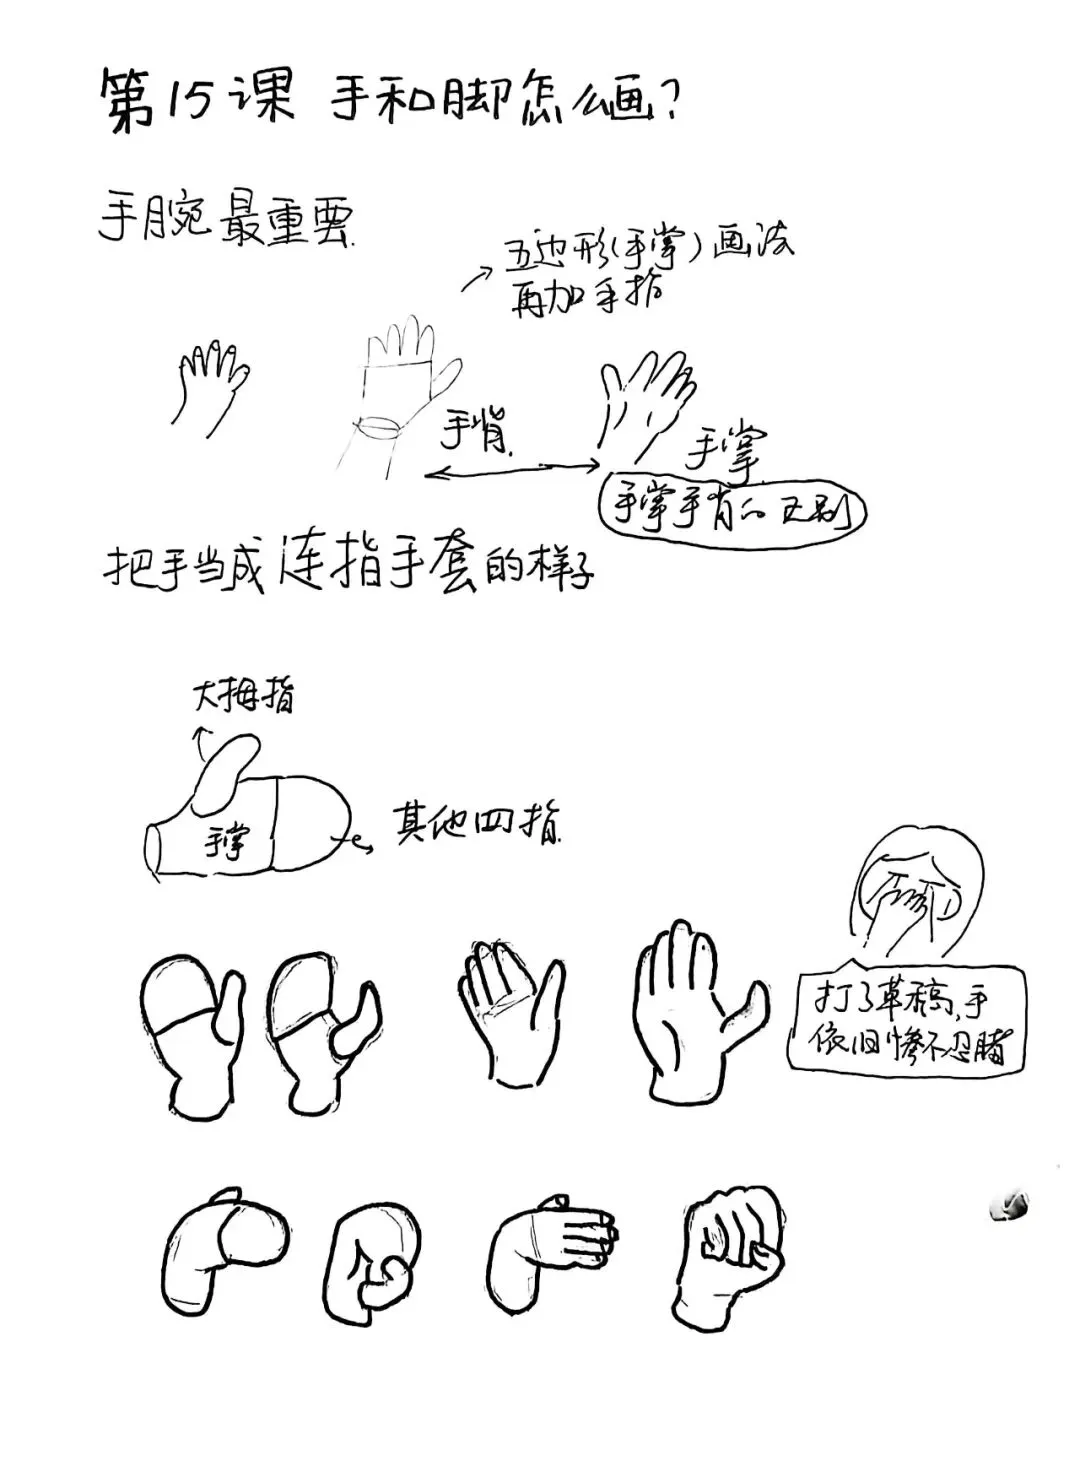 第15课 手和脚怎么画?
手腕最重要.
五边形(手掌)画法
再加手指
手背.
手掌.
手掌手背的区别
把手当成连指手套的样子
大拇指
手掌
其他四指.
打了草稿,手
依旧惨不忍睹